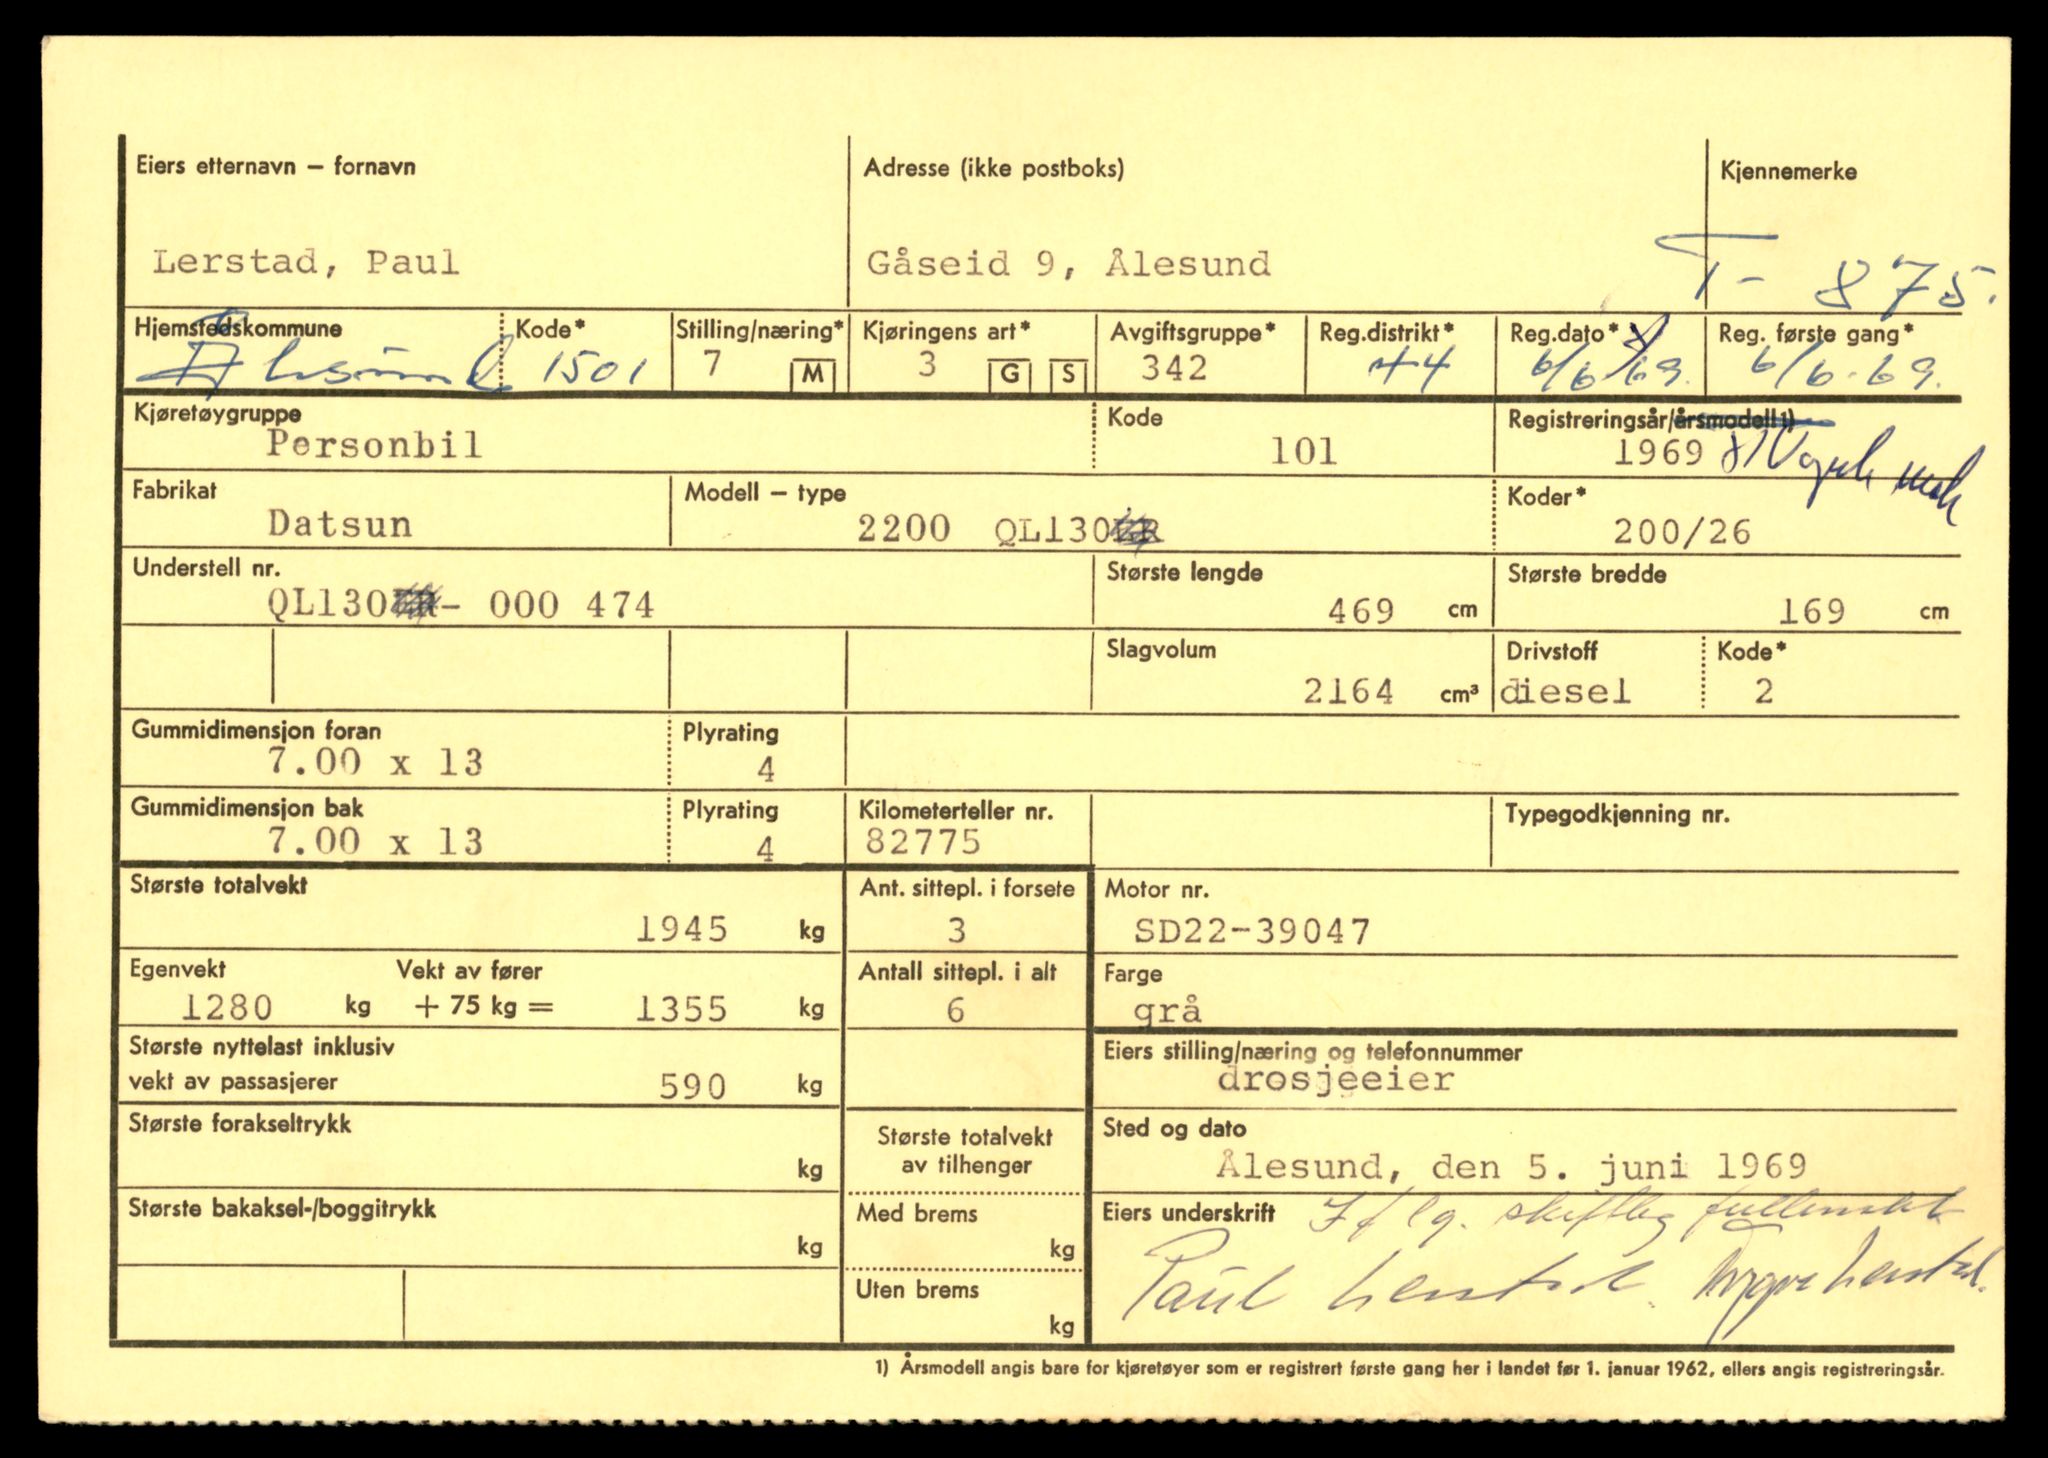 Eiers etternavn – fornavn Adresse (ikke postboks) Kjennemerke
Lerstad, Paul Gåseid 9, Ålesund T- 875.
Hjemstedskommune Kode* Stilling/næring* Kjøringens art* Avgiftsgruppe* Reg.distrikt* Reg.dato* Reg. første gang*
Ålesund 1501 7 M 3 G S 342 44 6/6 69. 6/6-69.
Kjøretøygruppe Kode Registreringsår/årsmodell 1)
Personbil 101 1969
Fabrikat Modell – type Koder*
Datsun 2200 QL130 200/26
Understell nr. Største lengde Største bredde
QL130 - 000 474 469 cm 169 cm
Slagvolum Drivstoff Kode*
2164 cm³ diesel 2
Gummidimensjon foran Plyrating
7.00 x 13 4
Gummidimensjon bak Plyrating Kilometerteller nr. Typegodkjenning nr.
7.00 x 13 4 82775
Største totalvekt Ant. sittepl. i forsete Motor nr.
1945 kg 3 SD22-39047
Egenvekt Vekt av fører Antall sittepl. i alt Farge
1280 kg + 75 kg = 1355 kg 6 grå
Største nyttelast inklusiv Eiers stilling/næring og telefonnummer
vekt av passasjerer 590 kg drosjeeier
Største forakseltrykk Største totalvekt Sted og dato
kg av tilhenger Ålesund, den 5. juni 1969
Største bakaksel-/boggitrykk Med brems Eiers underskrift If lg. skriftleg fullmakt
kg kg Paul Lerstad. Trygve Lerstad.
Uten brems
kg
1) Årsmodell angis bare for kjøretøyer som er registrert første gang her i landet før 1. januar 1962, ellers angis registreringsår.